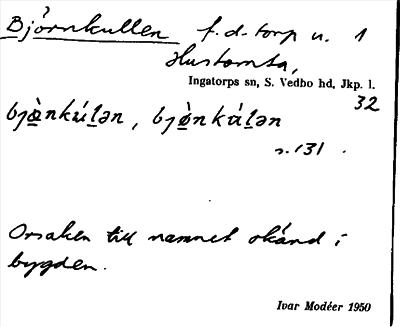 Björnkullen f.d. torp u. 1
Hustomta,
Ingatorps sn, S. Vedbo hd, Jkp. l.
32
bjö̀nkúlən, bjö̀nkúlən
s. 131.
Orsaken till namnet okänd i
bygden.
Ivar Modéer 1950